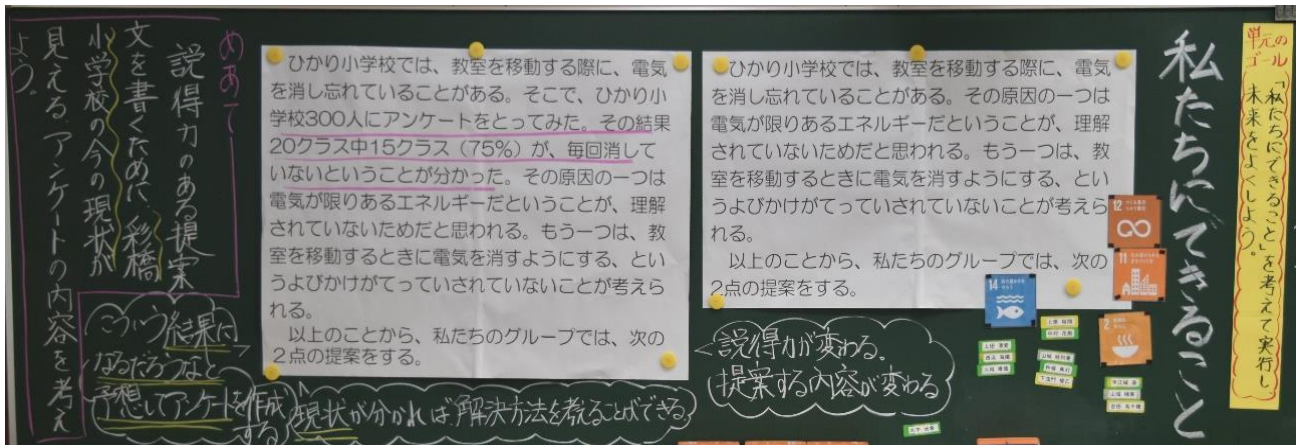 単元の
ゴール
「私たちにできること」を考えて実行し
未来をよくしよう。
私たちにできること
12
11
14
2
ひかり小学校では、教室を移動する際に、電気
を消し忘れていることがある。その原因の一つは
電気が限りあるエネルギーだということが、理解
されていないためだと思われる。もう一つは、教
室を移動するときに電気を消すようにする、とい
うよびかけがてっていされていないことが考えら
れる。
以上のことから、私たちのグループでは、次の
2点の提案をする。
説得力が変わる。
提案する内容が変わる
ひかり小学校では、教室を移動する際に、電気
を消し忘れていることがある。そこで、ひかり小
学校300人にアンケートをとってみた。その結果
20クラス中15クラス（75%）が、毎回消して
いないということが分かった。その原因の一つは
電気が限りあるエネルギーだということが、理解
されていないためだと思われる。もう一つは、教
室を移動するときに電気を消すようにする、とい
うよびかけがてっていされていないことが考えら
れる。
以上のことから、私たちのグループでは、次の
2点の提案をする。
現状が分かれば解決方法を考えることができる
めあて
説得力のある提案
文を書くために、彩橋
小学校の今の現状が
見える、アンケートの内容を考え
よう。
こういう結果に
なるだろうなと
予想してアンケートを作成
する